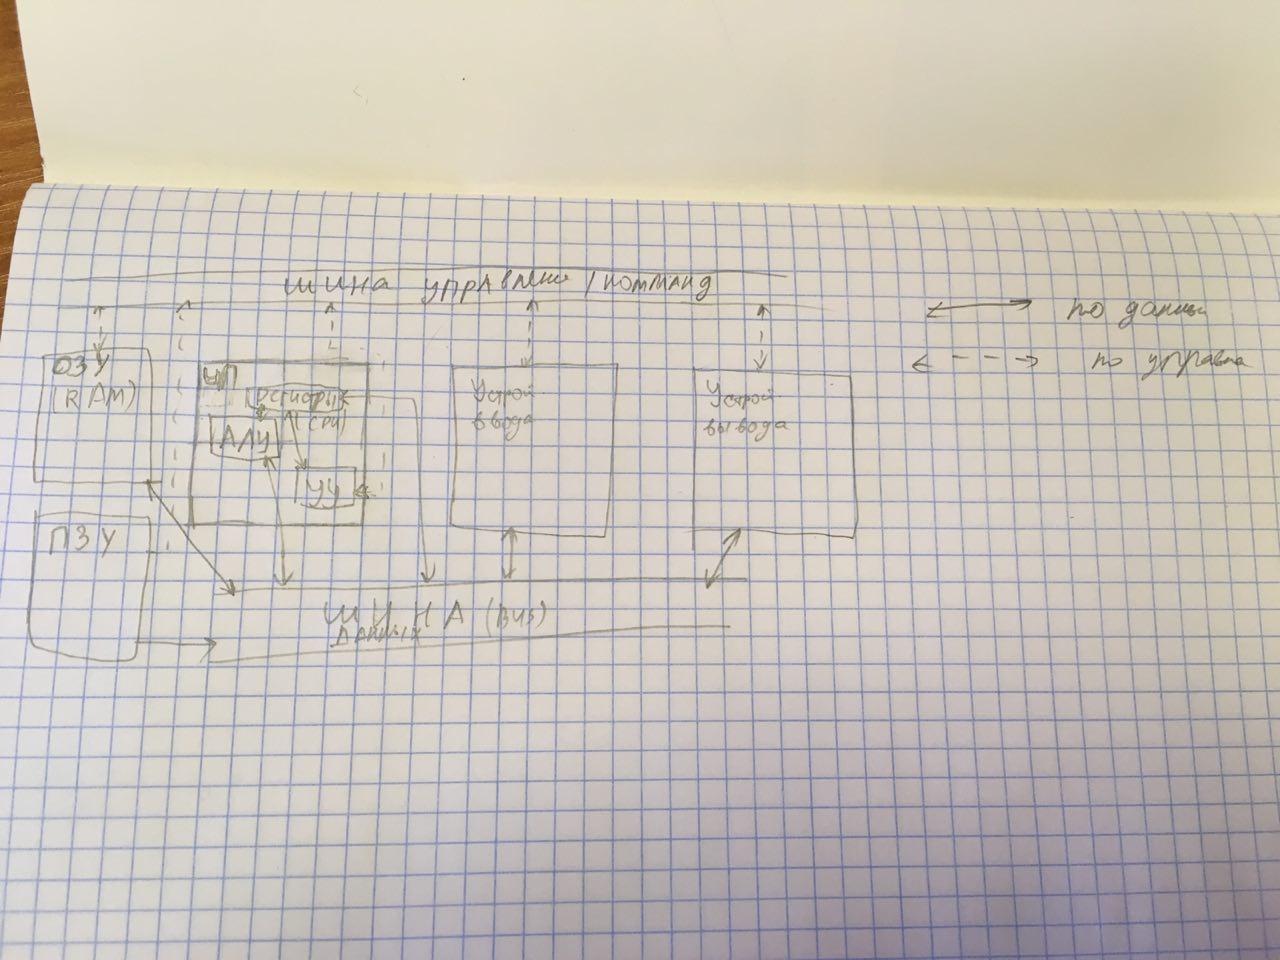 шина управлени / комманд
по данны
по управле
ОЗУ
(RAM)
ЦП
регистры
(СРИ)
АЛУ
УУ
Устрой
ввода
Устрой
вывода
ПЗУ
ШИНА (BUS)
ДАННЫХ